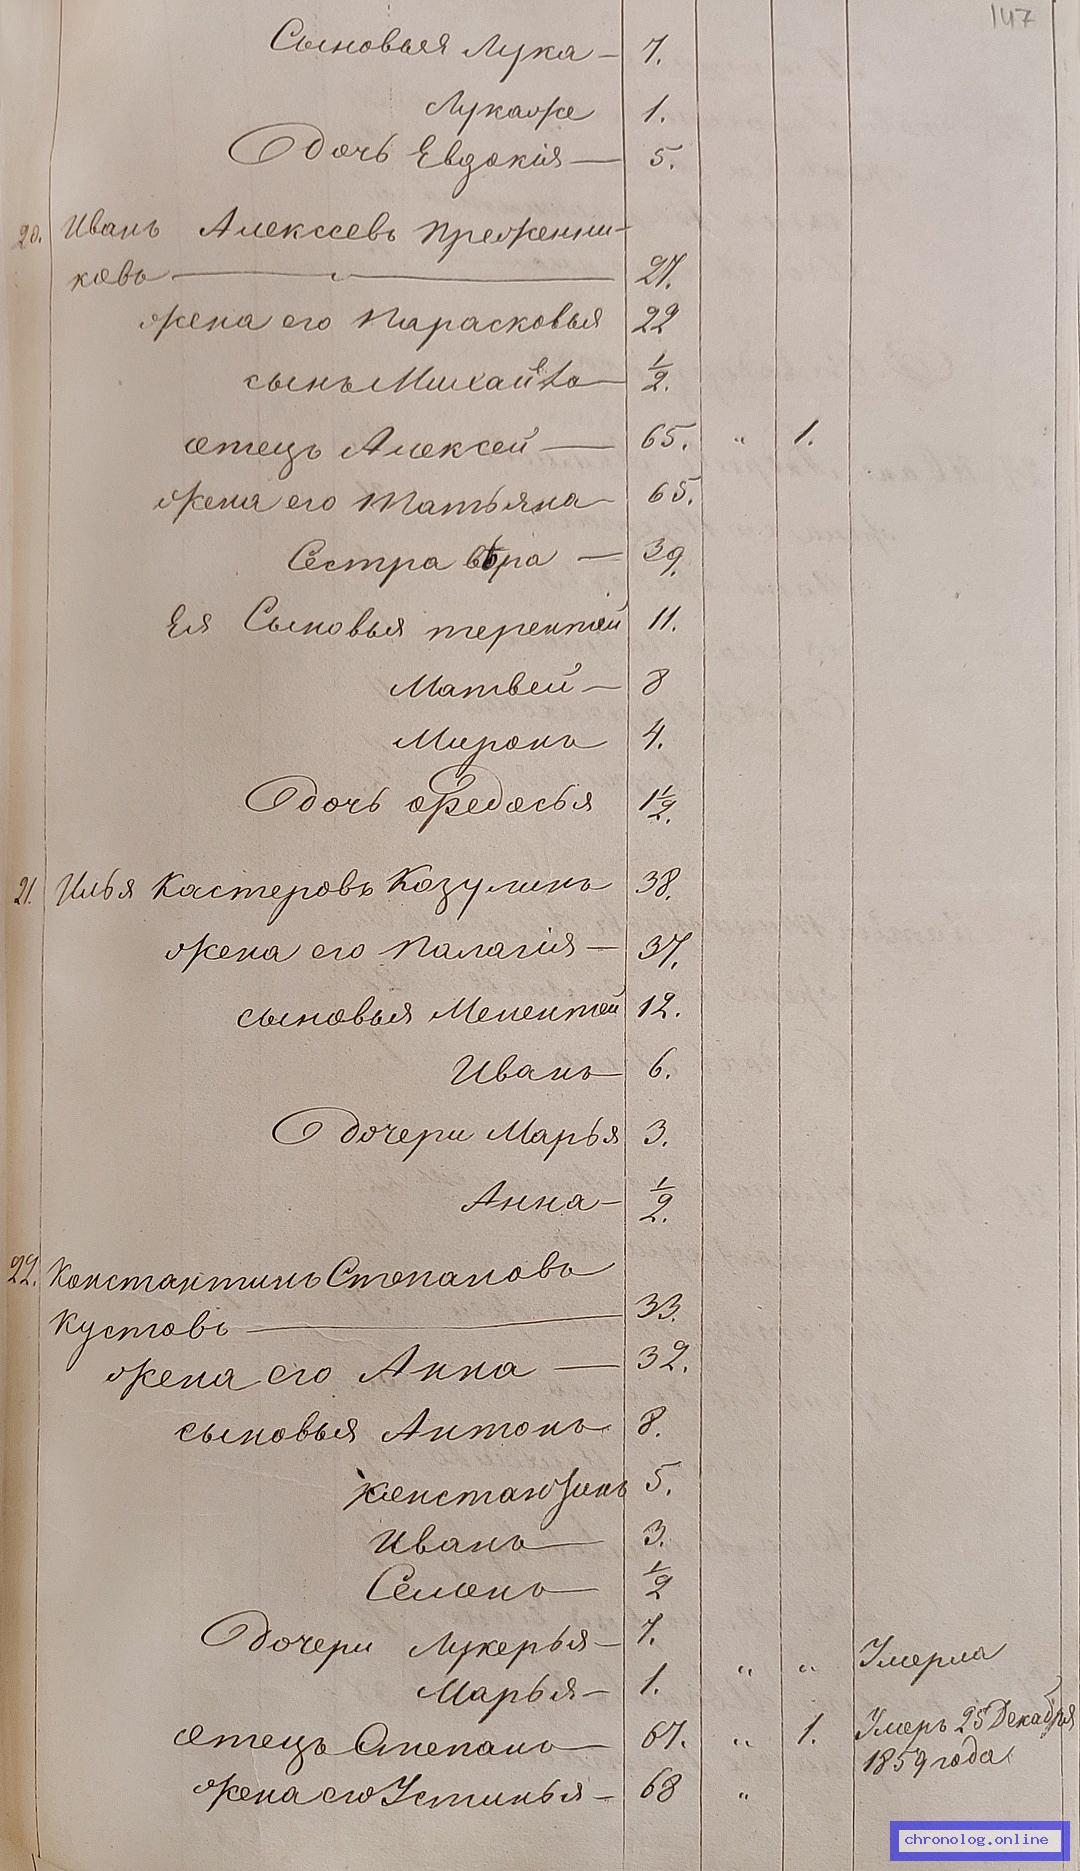 147
Сыновья Лука — 7.
Лукаже 1.
дочь Евдокія — 5.
20. Иванъ Алексеевъ Преженни-
ковъ — 27.
жена его Парасковья 22
сынъ Михайло — 1/2.
отецъ Алексей — 65. " 1.
жена его Татьяна — 65.
Сестра Вѣра — 39.
Ея Сыновья терентей 11.
Матвей — 8
Миронъ 4.
дочь Федосья 1 1/2.
21. Илья Кастеровъ Козулинъ 38.
жена его Палагія — 37.
сыновья Мелентей 12.
Иванъ 6.
дочери Марья 3.
Анна — 1/2.
22. Константинъ Степановъ
Кустовъ — 33.
жена его Анна — 32.
сыновья Антонъ 8.
Константинъ 5.
Иванъ — 3.
Семенъ — 1/2
дочери Лукерья — 7.
Марья — 1. " " Умерла
отецъ Степанъ — 67. " 1. Умеръ 25 Декабря
1859 года
жена его Устинья — 68 "
chronolog.online